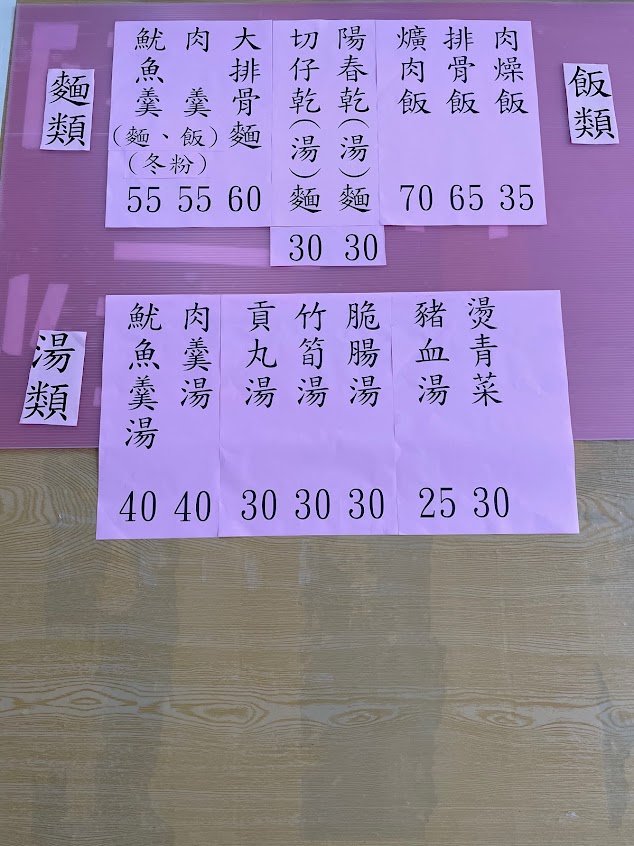 飯類
肉燥飯 35
排骨飯 65
爌肉飯 70
麵類
陽春乾(湯)麵 30
切仔乾(湯)麵 30
大排骨麵 60
肉羹 55
魷魚羹 55
(麵、飯)
(冬粉)
湯類
燙青菜 30
豬血湯 25
脆腸湯 30
竹筍湯 30
貢丸湯 30
肉羹湯 40
魷魚羹湯 40